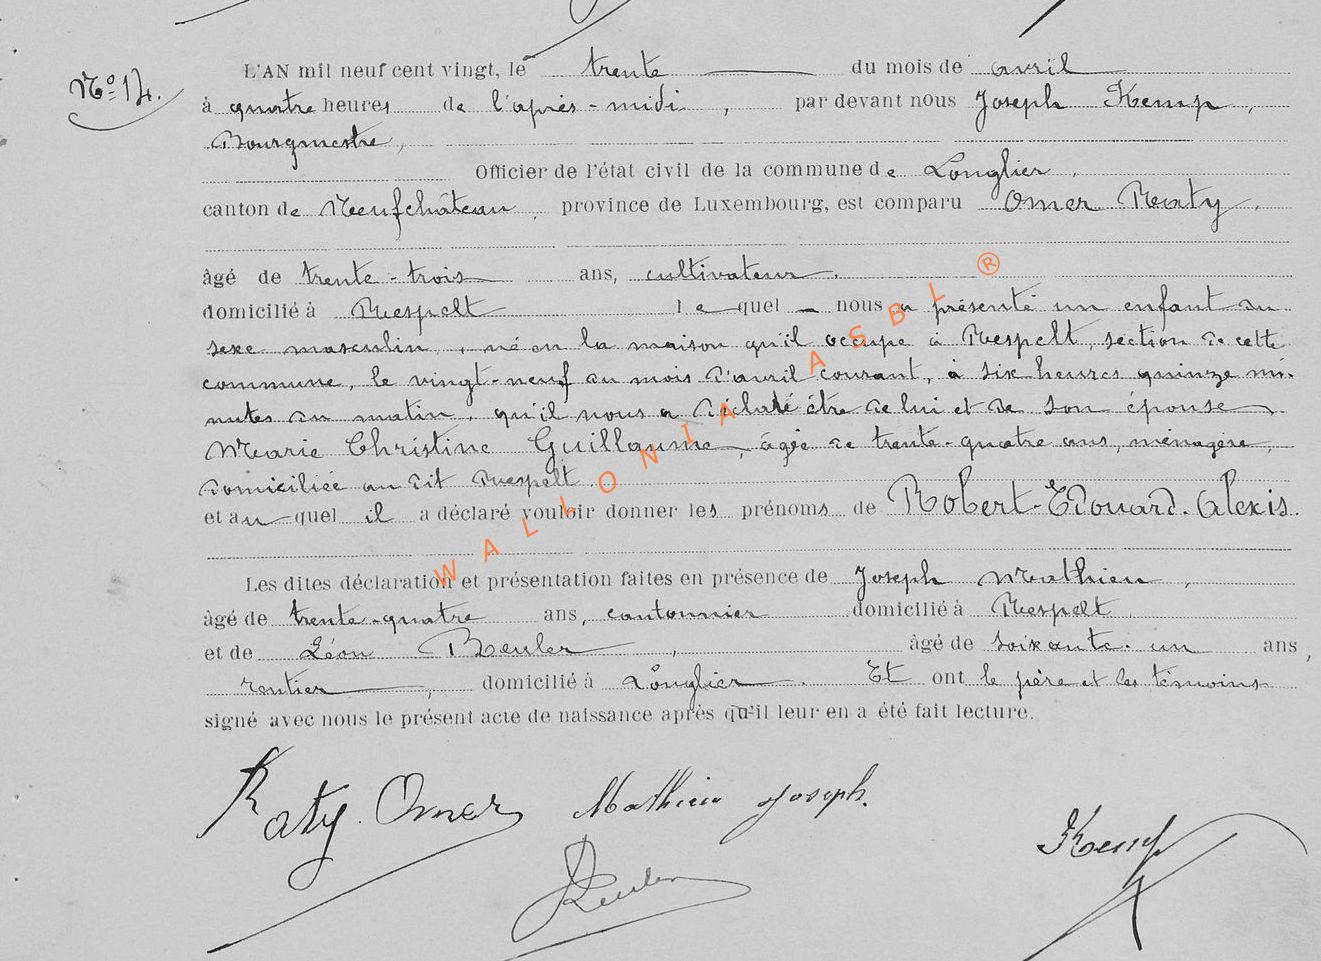 N° 14.
L'AN mil neuf cent vingt, le trente du mois de avril
à quatre heures de l'après-midi, par devant nous Joseph Kemp,
Bourgmestre,
Officier de l'état civil de la commune de Longlier,
canton de Neufchâteau, province de Luxembourg, est comparu Omer Raty,
âgé de trente-trois ans, cultivateur,
domicilié à Respelt lequel nous a présenté un enfant du
sexe masculin, né en la maison qu'il occupe à Respelt, section de cette
commune, le vingt-neuf du mois d'avril courant, à six heures quinze mi-
nutes du matin, qu'il nous a déclaré être de lui et de son épouse
Marie Christine Guillaume, âgée de trente-quatre ans, ménagère,
domiciliée au dit Respelt,
et auquel il a déclaré vouloir donner les prénoms de Robert-Edouard-Alexis.
Les dites déclaration et présentation faites en présence de Joseph Mathieu,
âgé de trente-quatre ans, cantonnier domicilié à Respelt
et de Léon Beuler, âgé de soixante-un ans,
rentier, domicilié à Longlier. Et ont le père et les témoins
signé avec nous le présent acte de naissance après qu'il leur en a été fait lecture.
Raty Omer Mathieu Joseph.
Kemp
Beuler
WALLONIA ASBL ®